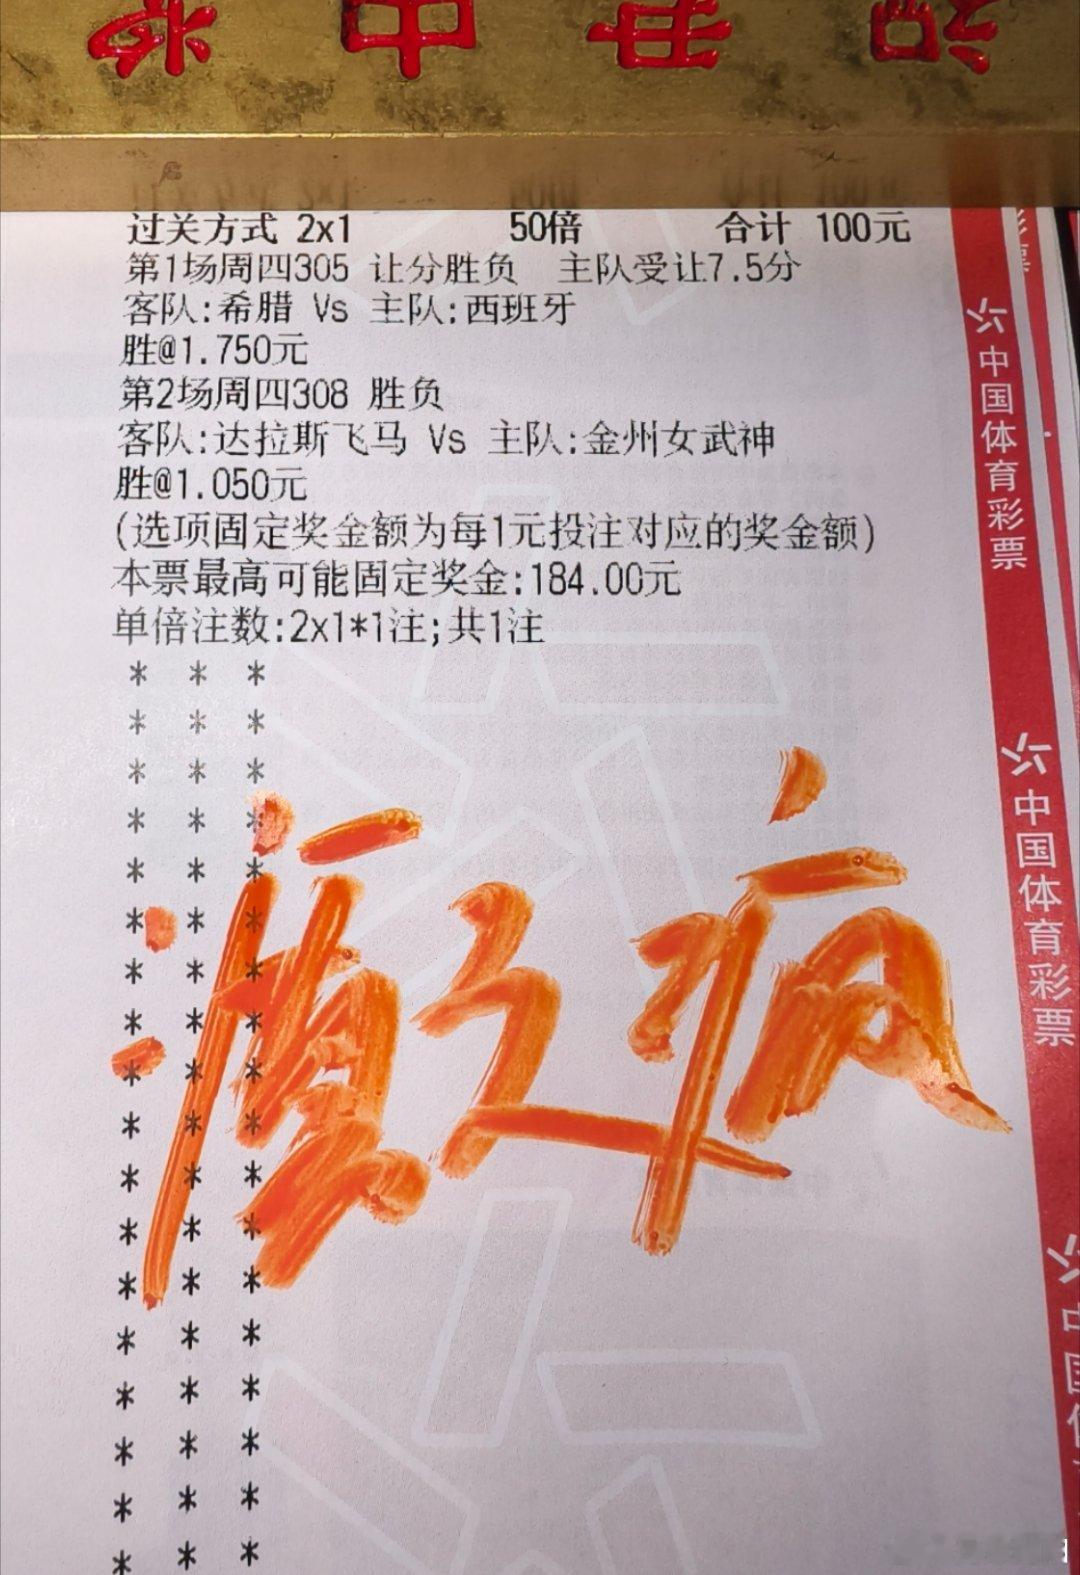 祝君中奖
过关方式 2x1 50倍 合计 100元
第1场周四305 让分胜负 主队受让7.5分
客队:希腊 Vs 主队:西班牙
胜@1.750元
第2场周四308 胜负
客队:达拉斯飞马 Vs 主队:金州女武神
胜@1.050元
(选项固定奖金额为每1元投注对应的奖金额)
本票最高可能固定奖金:184.00元
单倍注数:2x1*1注;共1注
中国体育彩票
中国体育彩票